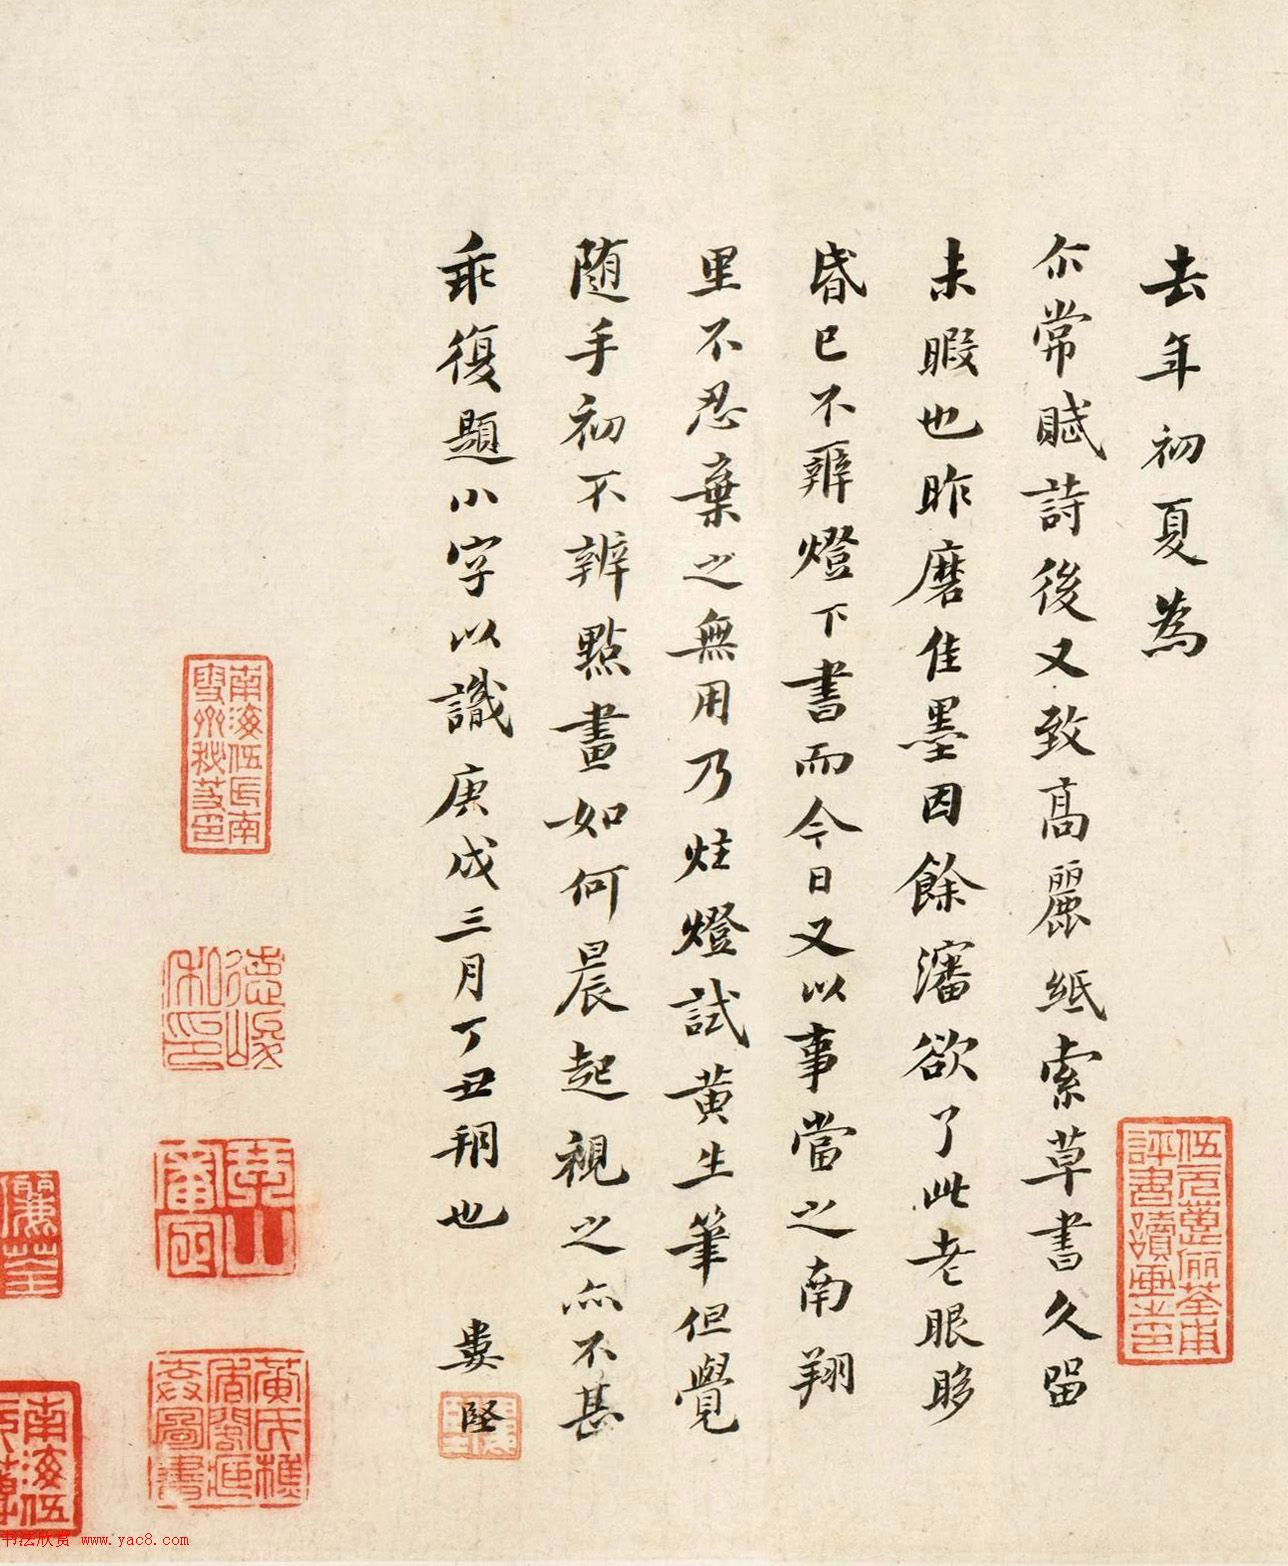 去年初夏為
尒常賦詩後又致高麗紙索草書久留
未暇也昨磨佳墨因餘瀋欲了此老眼眵
昏已不辨燈下書而今日又以事當之南翔
里不忍棄之無用乃炷燈試黃生筆但覺
随手初不辨點畫如何晨起視之亦不甚
乖復題小字以識庚戌三月丁丑朔也 婁堅
伍元蕙儷荃甫
評書讀畫之印
南海伍氏南
雪齋秘笈印
德峻
私印
南海伍
儷荃
书法欣赏 www.yac8.com